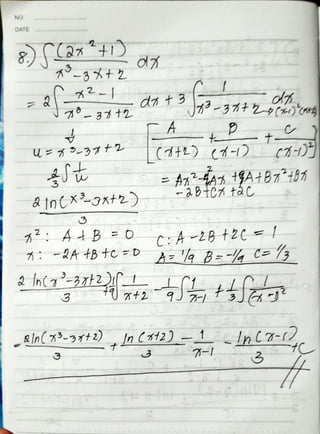 NO
DATE
8.) ∫ (2x²+1) / x³-3x+2 dx
= 2∫ x²-1 / x³-3x+2 dx + 3∫ 1 / x³-3x+2 dx → (x-1)²(x+2)
↓
u = x³-3x+2 [ A/(x+2) + B/(x-1) + C/(x-1)² ]
2/3 ∫ 1/u = Ax²-2Ax+A+Bx²+Bx
-2B+Cx+2C
2 ln(x³-3x+2) / 3
x²: A+B=0 C: A-2B+2C=1
x: -2A+B+C=0 A=1/9 B=-1/9 C=1/3
2 ln(x³-3x+2) / 3 + 1/9 ∫ 1/x+2 - 1/9 ∫ 1/x-1 + 1/3 ∫ 1/(x-1)²
= 2ln(x³-3x+2) / 3 + ln(x+2) / 3 - 1/x-1 - ln(x-1) / 3 + C //